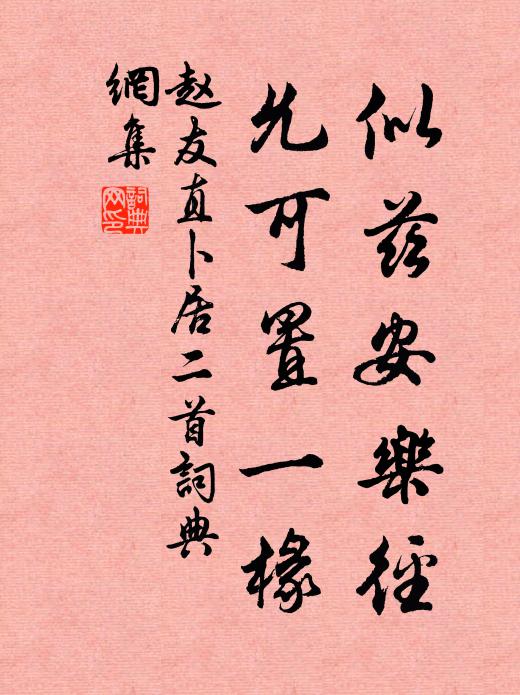 似茲安樂徑
允可置一椽
赵友直卜居二首詞典
網集
詞典
网印